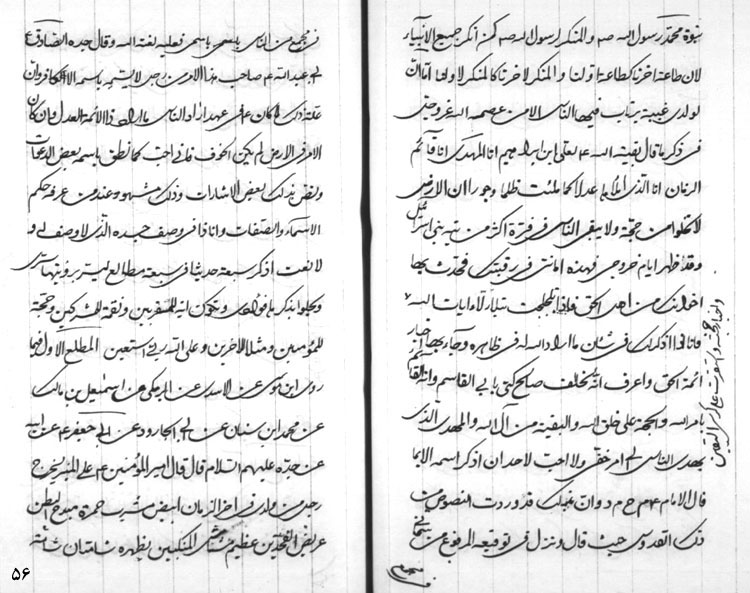 نبوة محمد رسول الله صه والمنكر لرسول الله صه كمن انكر جميع الانبياء
لان طاعة اخرنا كطاعة اولنا والمنكر لاخرنا كالمنكر لاولنا اما ان
لولدى غيبة يرتاب فيها الناس الا من عصمه الله عز وجل
فى ذكر ما قال بقية الله ع لعلى ابن ابراهيم انا المهدى انا قائم
الزمان انا الذى املأها عدلا كما ملئت ظلما وجورا ان الارض
لا تخلوا من حجة ولا يبقى الناس فى فترة اكثر من تيه بنى اسرائيل
وقد ظهر ايام خروجى فهذه امانتى فى رقبتك فحدث بها
اخوانك من اهل الحق
وانا ذا اذكرك فى شان ما اراد الله له فى ظاهره وجاء بها اخبار
ائمة الحق واعرف انه يخلف صالح كنى بابى القاسم وانه القائم
بامر الله والحجة على خلق الله والبقية من آل الله والمهدى الذى
يهدى الناس الى امر خفى ولا احب لاحد ان اذكر اسمه الا بما
قال الامام ع م ح م د وان قد وردت النصوص من
ذلك القدوس حيث قال ونزل فى توقيعه المرفوع عن
فى مجمع من الناس باسمى فعليه لعنة الله وقال جده الصادق ع
ابى عبد الله ع صاحب هذا الامر رجل لا يسميه باسمه الا كافر وان
علة ذلك لما كان ع فى عهد اراد الناس ذا الائمة العدل وان كان
الامر فى الارض لم يكن الخوف فانى احب كما نطق باسمه بعض الدعوات
ونص بذلك بعض الاشارات وذلك مشهود عند من عرف حكم
الاسماء والصفات وانا ذا فى وصف جسده الذى لا وصف له و
لا نعت اذكر سبعة حديثا فى سبعة مطالع
ويكون اية للمقربين ونقمة للمشركين وحجة
للمؤمنين ومثلا للاخرين وعلى الله ربى استعين المطلع الاول فيما
روى ابن موسى عن الاسدى عن البرمكى عن اسمعيل بن مالك
عن محمد ابن سنان عن ابى الجارود عن ابى جعفر ع عن ابيه
عن جده عليهم السلام قال قال امير المؤمنين ع على المنبر يخرج
رجل من ولدى فى اخر الزمان ابيض مشرب حمرة مبدح البطن
عريض الفخذين عظيم مشاش المنكبين بظهره شامتان شامة
۵۶